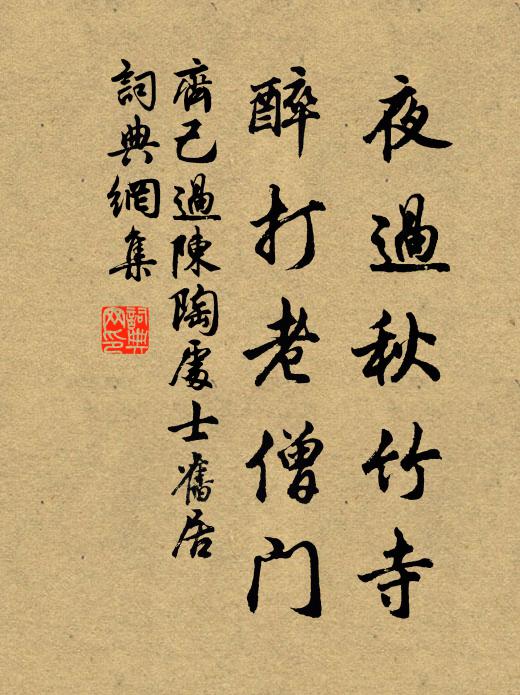 夜過秋竹寺
醉打老僧門
齊己過陳陶處士舊居
詞典網集
詞典网印